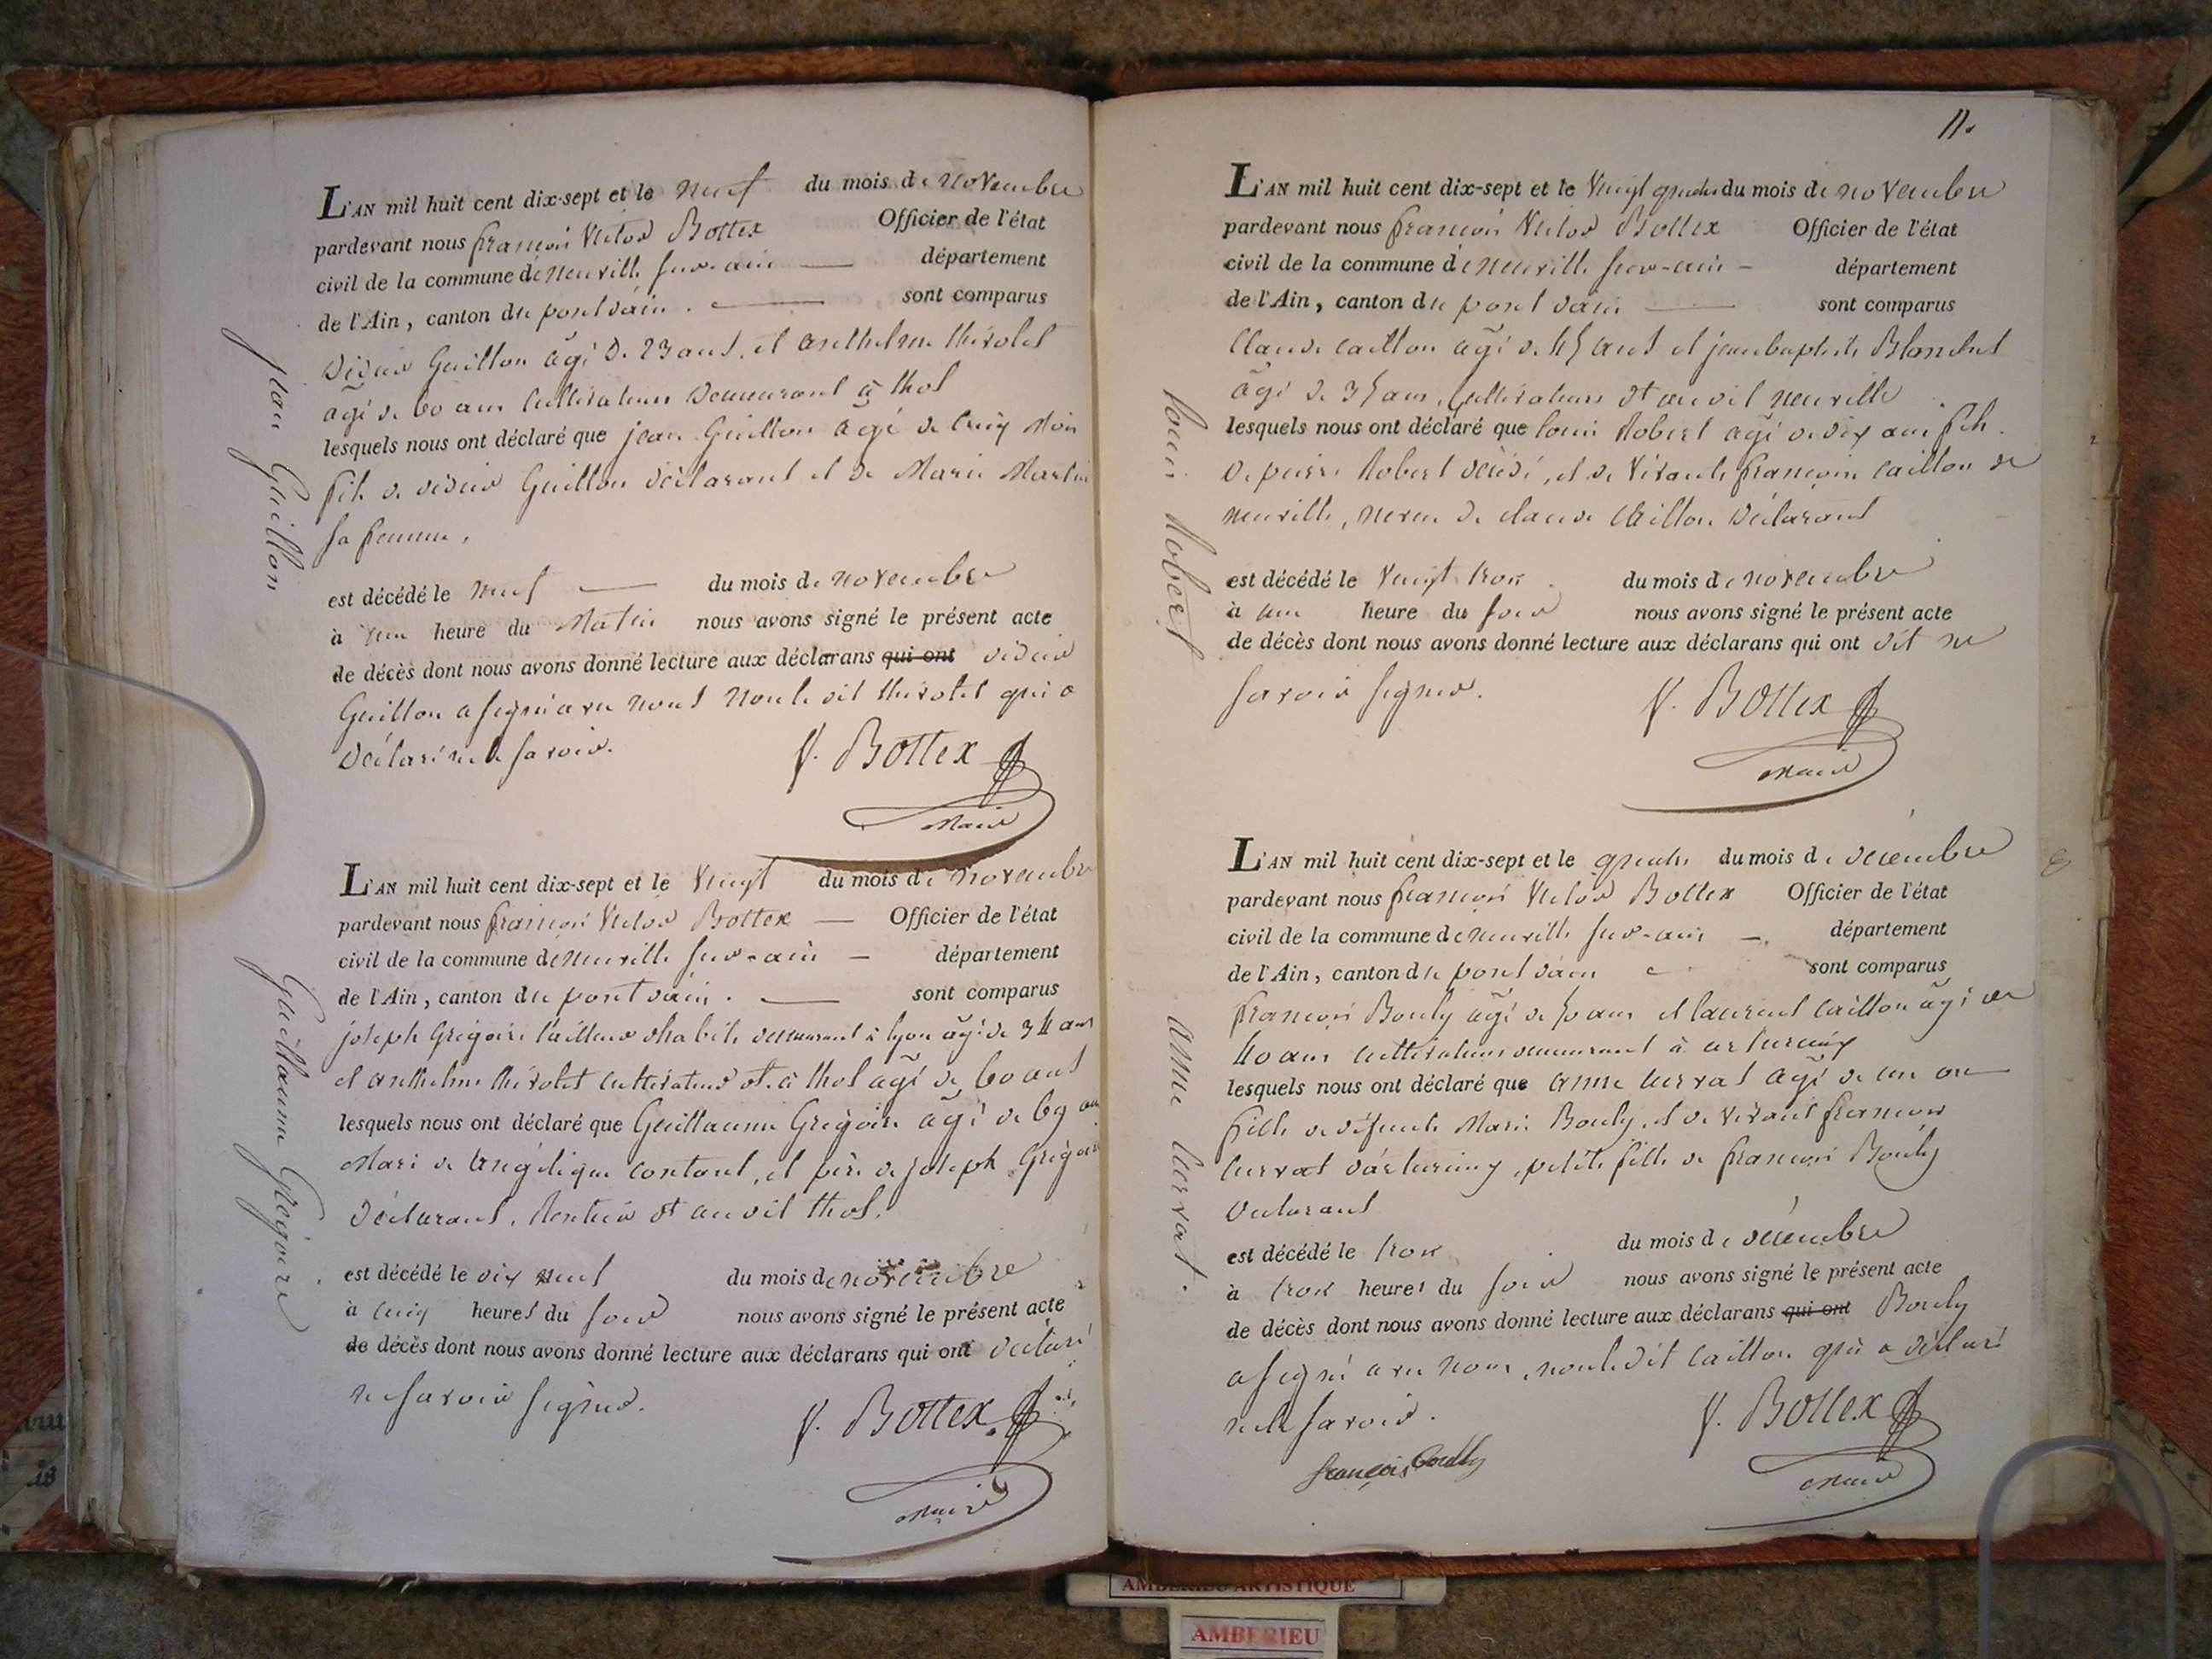 L'AN mil huit cent dix-sept et le neuf du mois de novembre
pardevant nous françois Victor Bottex Officier de l'état
civil de la commune de neuville sur-ain — département
de l'Ain, canton du pont d'ain. — sont comparus
didier Guillon agé de 23 ans, et anthelme thévolet
agé de 60 ans cultivateurs demeurant à thol
lesquels nous ont déclaré que jean Guillon agé de cinq mois
fils de didier Guillon déclarant et de Marie Martin
sa femme,
est décédé le neuf — du mois de novembre
à une heure du Matin nous avons signé le présent acte
de décès dont nous avons donné lecture aux déclarans qui ont didier
Guillon a signé avec nous non le dit thévolet qui a
déclaré ne le savoir.
V. Bottex
Maire
jean Guillon
L'AN mil huit cent dix-sept et le vingt du mois de novembre
pardevant nous françois Victor Bottex — Officier de l'état
civil de la commune de neuville sur-ain — département
de l'Ain, canton du pont d'ain. — sont comparus
joseph Grégoire tailleur d'habits demeurant à lyon agé de 34 ans
et anthelme thévolet cultivateur dt. à thol agé de 60 ans
lesquels nous ont déclaré que Guillaume Grégoire agé de 69 ans
Mari de angélique contant, et père de joseph Grégoire
déclarant, Rentier dt audit thol.
est décédé le dix neuf du mois de novembre
à cinq heures du soir nous avons signé le présent acte
de décès dont nous avons donné lecture aux déclarans qui ont déclaré
ne savoir signer.
V. Bottex
Maire
Guillaume Grégoire
11.
L'AN mil huit cent dix-sept et le vingt quatre du mois de novembre
pardevant nous françois Victor Bottex Officier de l'état
civil de la commune de neuville sur-ain — département
de l'Ain, canton du pont d'ain — sont comparus
Claude caillon agé de 45 ans et jean baptiste Blanchet
agé de 35 ans, cultivateurs dt audit neuville
lesquels nous ont déclaré que louis Robert agé de dix ans fils
de pierre Robert décédé, et de vivante françoise caillon de
neuville, neveu de claude caillon déclarant
est décédé le vingt trois du mois de novembre
à une heure du soir nous avons signé le présent acte
de décès dont nous avons donné lecture aux déclarans qui ont dit ne
savoir signer.
V. Bottex
Maire
louis Robert
L'AN mil huit cent dix-sept et le quatre du mois de décembre
pardevant nous françois Victor Bottex Officier de l'état
civil de la commune de neuville sur-ain —. département
de l'Ain, canton du pont d'ain sont comparus
françois Bouly agé de 50 ans et laurent caillon agé de
40 ans cultivateurs demeurant à
lesquels nous ont déclaré que anne curvat agé de un an
fille de défunte Marie Bouly, et de vivant françois
curvat petite fille de françois Bouly
déclarant
est décédé le trois du mois de décembre
à trois heures du soir nous avons signé le présent acte
de décès dont nous avons donné lecture aux déclarans qui ont Bouly
a signé avec nous, non le dit caillon qui a déclaré
ne le savoir.
françois Boully
V. Bottex
Maire
anne curvat.
AMBERIEU ARTISTIQUE
AMBERIEU